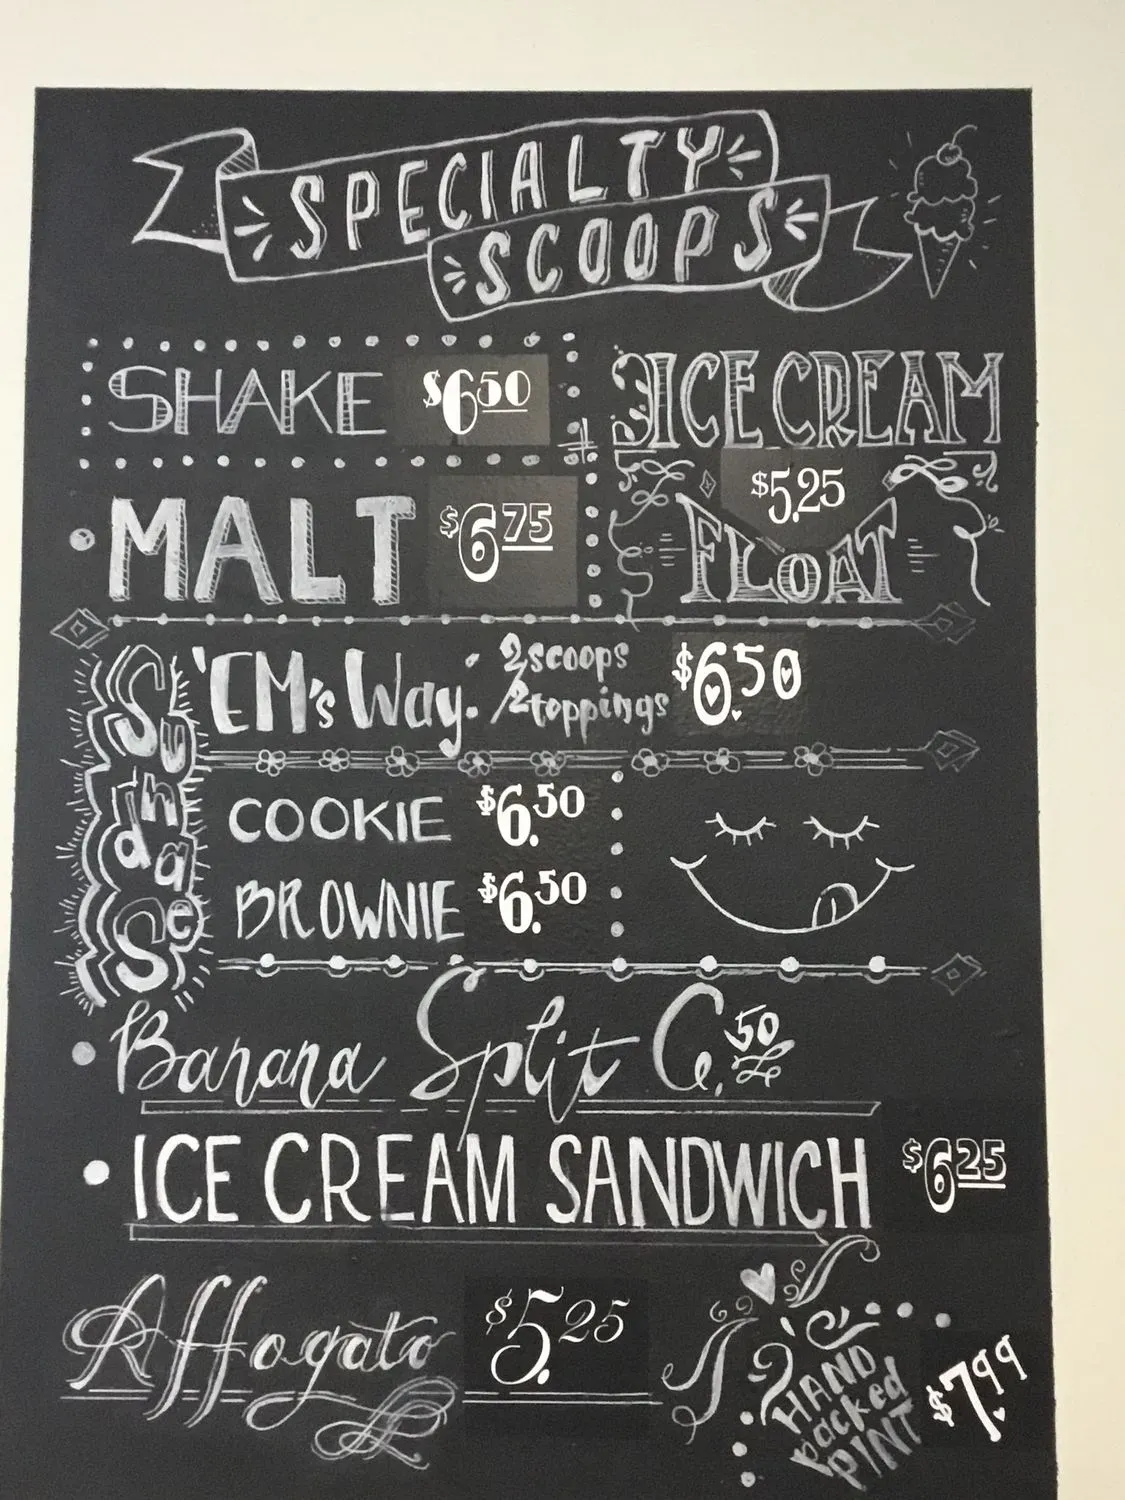 SPECIALTY
SCOOPS
SHAKE $6.50
ICE CREAM
$5.25
FLOAT
MALT $6.75
Sundaes
'EM's Way: 2 scoops
2 toppings $6.50
COOKIE $6.50
BROWNIE $6.50
Banana Split 6.50
ICE CREAM SANDWICH $6.25
Affogato $5.25
HAND
packed
PINT
$7.99